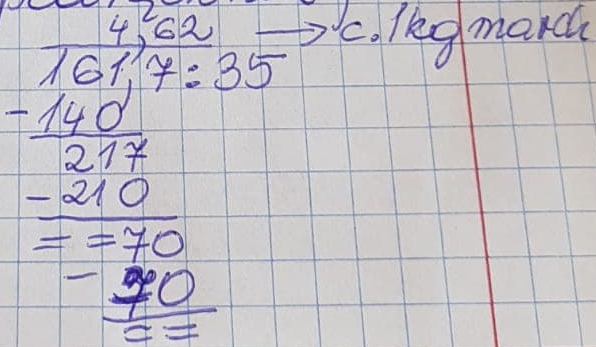 4,62 → c. 1kg march
161,7 : 35
- 140
217
- 210
= = 70
- 70
= =